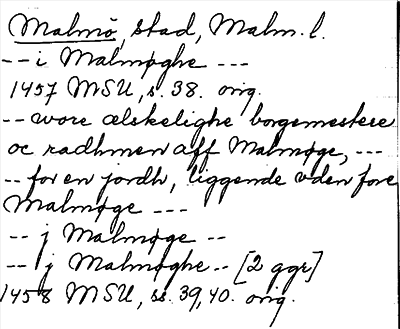 Malmö, stad, Malm. l.
-- i Malmøghe ---
1457 MSU, s. 38. orig.
-- wore ælskelighe borgemestere
oc radhmen aff Malmøge, ---
-- for en jordh, liggende vden fore
Malmøge ---
-- j Malmøge --
-- j Malmøghe -- [2 ggr]
1458 MSU, ss. 39, 40. orig.